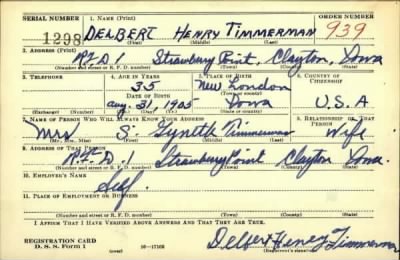 SERIAL NUMBER 1. NAME (Print) ORDER NUMBER
1298 DELBERT HENRY TIMMERMAN 939
(First) (Middle) (Last)
2. ADDRESS (Print)
RFD 1 Strawberry Point, Clayton, Iowa
(Number and street or R. F. D. number) (Town) (County) (State)
3. TELEPHONE 4. AGE IN YEARS 5. PLACE OF BIRTH 6. COUNTRY OF CITIZENSHIP
35 New London
DATE OF BIRTH (Town or county)
Aug. 31, 1905 Iowa U.S.A
(Exchange) (Number) (Mo.) (Day) (Yr.) (State or country)
7. NAME OF PERSON WHO WILL ALWAYS KNOW YOUR ADDRESS 8. RELATIONSHIP OF THAT PERSON
Mrs S. Timmerman Wife
(Mr., Mrs., Miss) (First) (Middle) (Last)
9. ADDRESS OF THAT PERSON
R.F.D. 1 Strawberry Point Clayton Iowa.
(Number and street or R. F. D. number) (Town) (County) (State)
10. EMPLOYER'S NAME
Self.
11. PLACE OF EMPLOYMENT OR BUSINESS
(Number and street or R. F. D. number) (Town) (County) (State)
I AFFIRM THAT I HAVE VERIFIED ABOVE ANSWERS AND THAT THEY ARE TRUE.
REGISTRATION CARD
D. S. S. Form 1 16-17105 Delbert Henry Timmerman
(Registrant's signature)